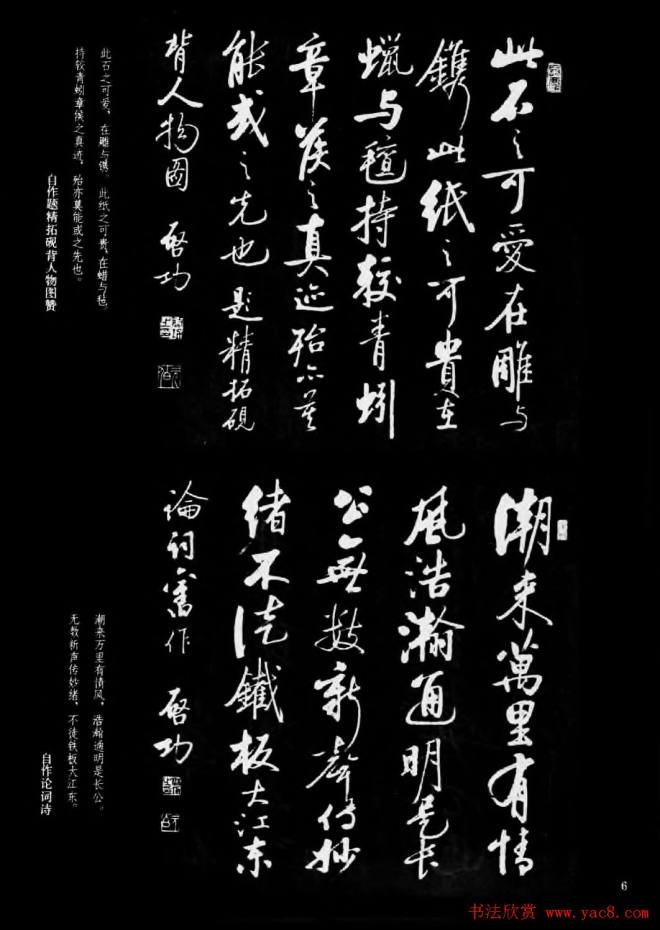 此石之可愛在雕与
鐫此紙之可貴在
蠟与氊持較青蚓
章侯之真迹殆亦莫
能或之先也題精拓硯
背人物圖 啓功
此石之可爱，在雕与镌。此纸之可贵，在蜡与毡。
持较青蚓章侯之真迹，殆亦莫能或之先也。
自作题精拓砚背人物图赞
潮来萬里有情
風浩瀚通明是长
公無数新聲传妙
绪不徒鐵板大江东
論詞舊作 啓功
潮来万里有情风，浩瀚通明是长公。
无数新声传妙绪，不徒铁板大江东。
自作论词诗
6
书法欣赏 www.yac8.com